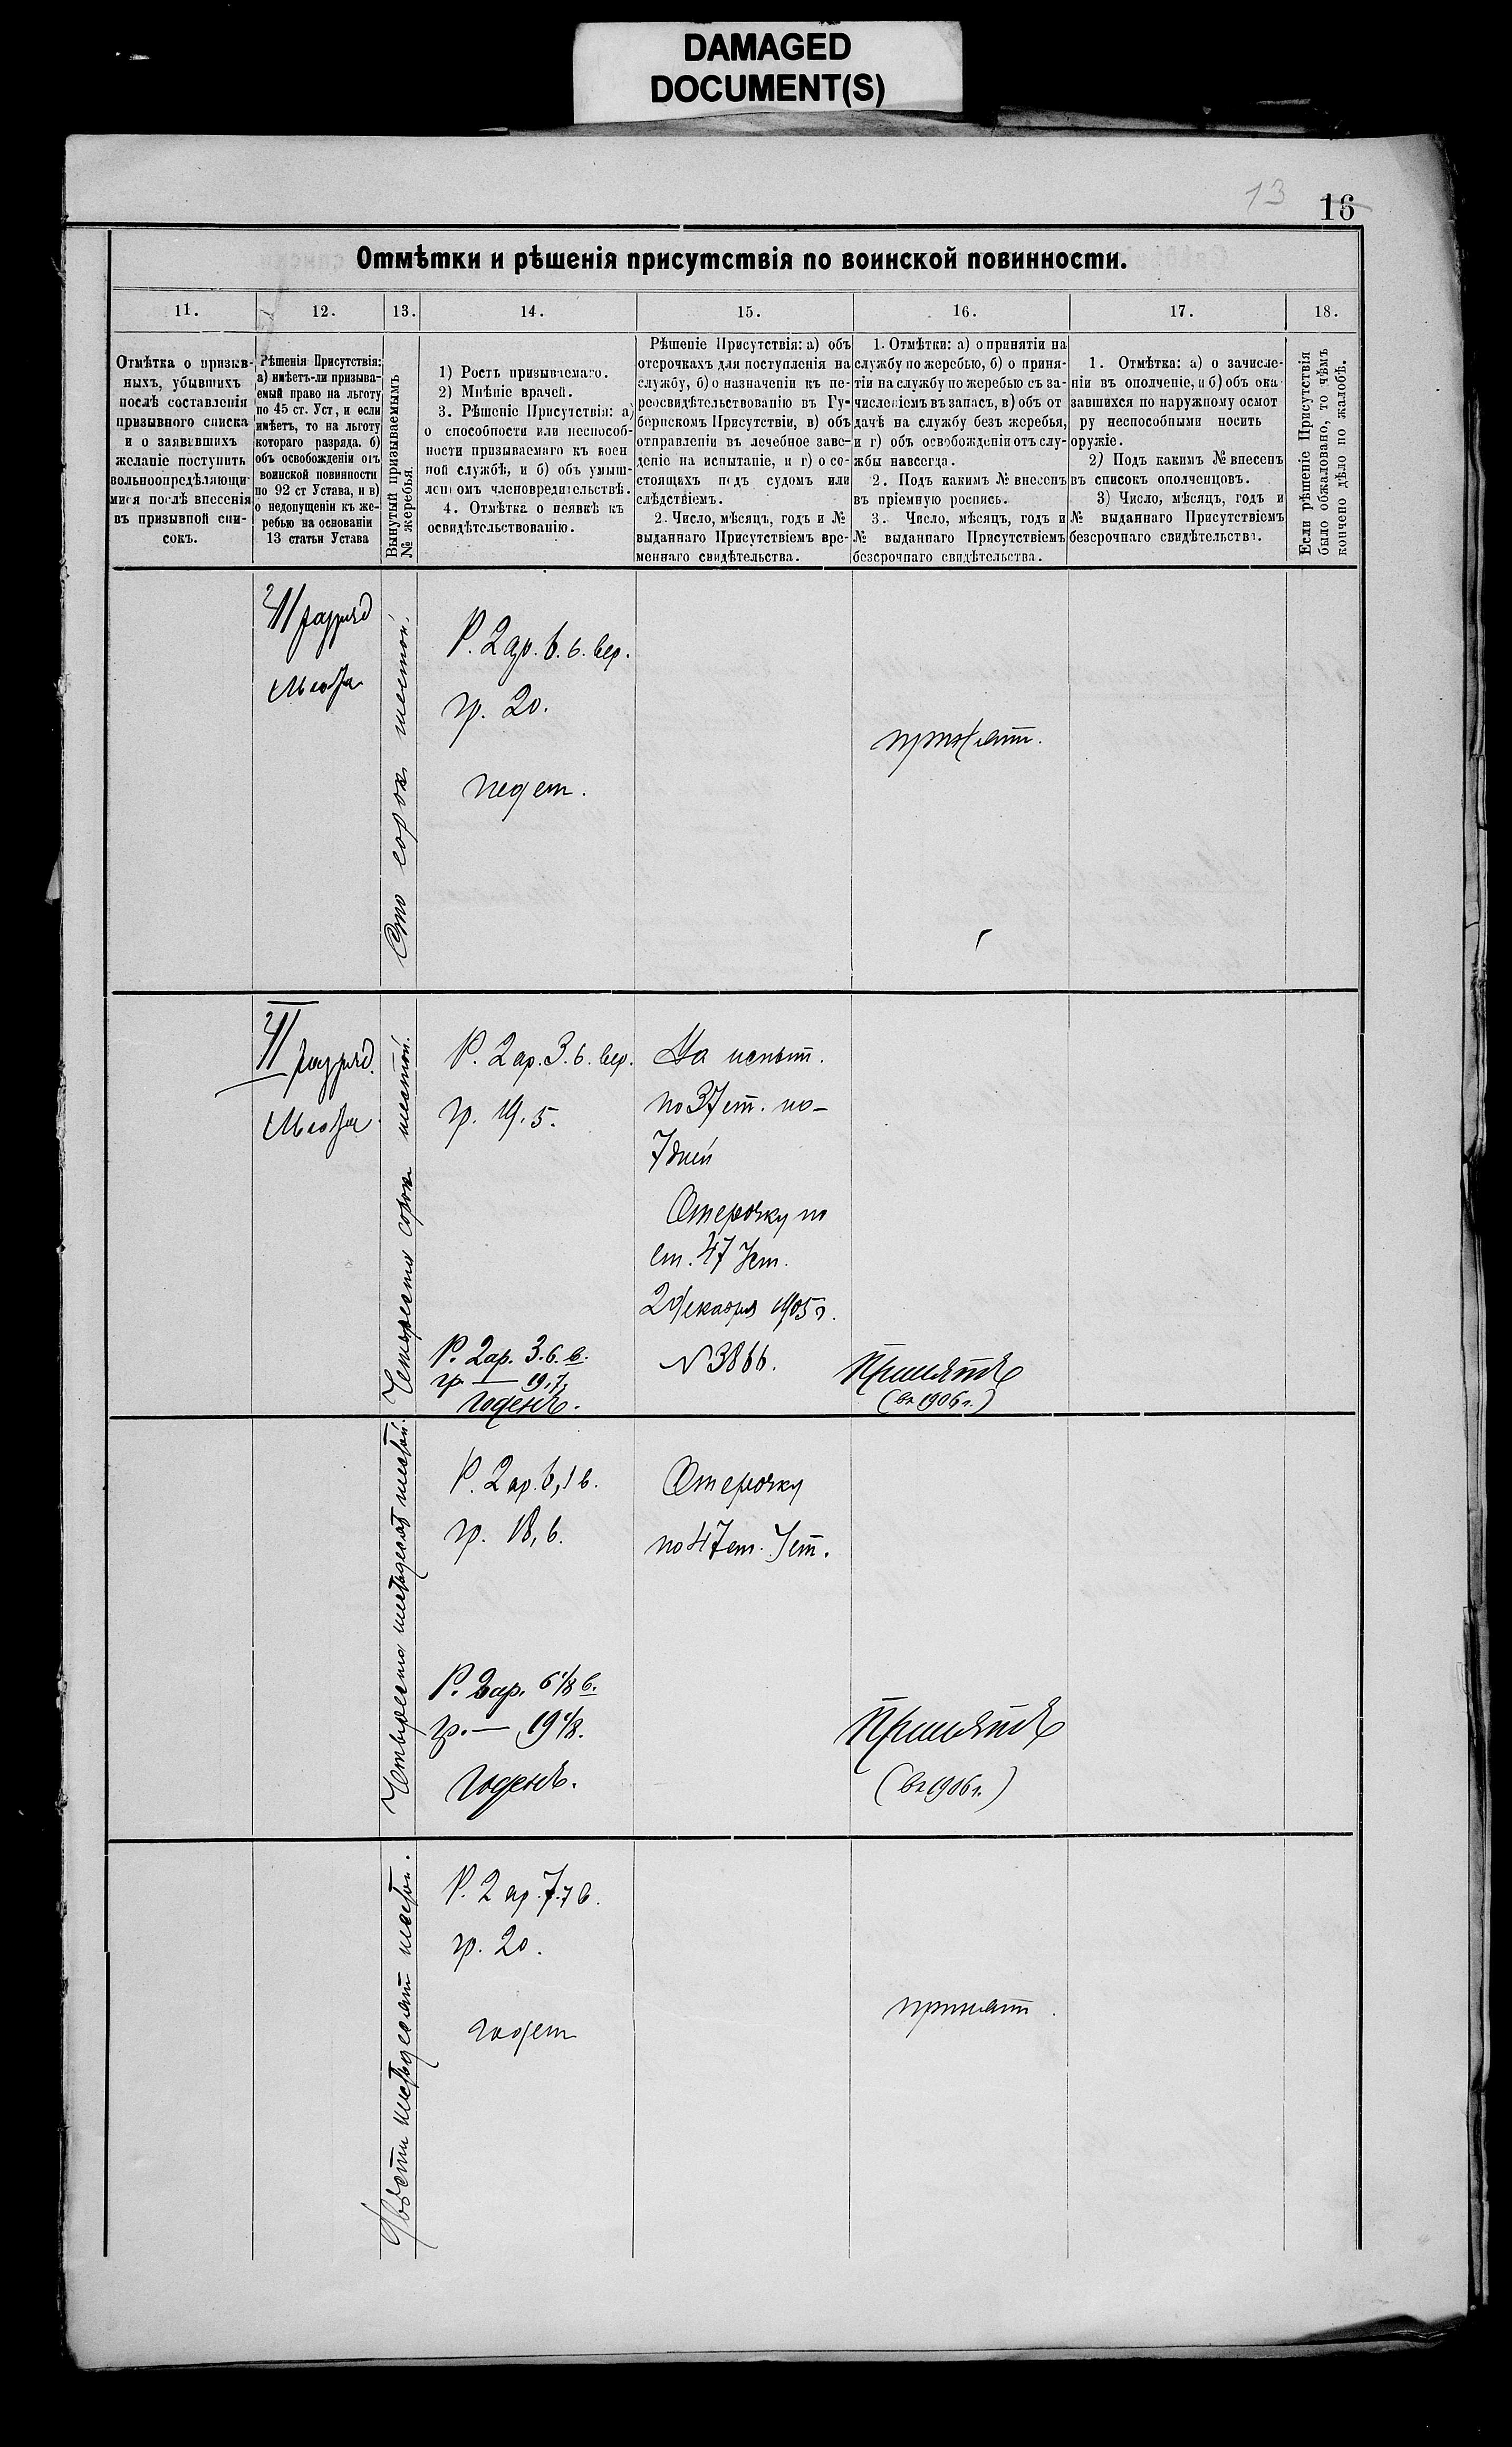 DAMAGED
DOCUMENT(S)
13
16
Отмѣтки и рѣшенія присутствія по воинской повинности.
11.
12.
13.
14.
15.
16.
17.
18.
Отмѣтка о призыв-
ныхъ, убывшихъ
послѣ составленія
призывного списка
и о заявившихъ
желаніе поступить
вольноопредѣляющи-
мися послѣ внесенія
въ призывной спи-
сокъ.
Рѣшенія Присутствія:
а) имѣетъ-ли призыва-
емый право на льготу
по 45 ст. Уст, и если
имѣетъ, то на льготу
котораго разряда. б)
объ освобожденіи отъ
воинской повинности
по 92 ст Устава, и в)
о недопущеніи къ же-
ребью на основаніи
13 статьи Устава
Вынутый призываемымъ
№ жеребья.
1) Ростъ призываемаго.
2) Мнѣніе врачей.
3. Рѣшеніе Присутствія: а)
о способности или неспособ-
ности призываемаго къ воен
ной службѣ, и б) объ умыш-
ленномъ членовредительствѣ.
4. Отмѣтка о неявкѣ къ
освидѣтельствованію.
Рѣшеніе Присутствія: а) объ
отсрочкахъ для поступленія на
службу, б) о назначеніи къ пе-
реосвидѣтельствованію въ Гу-
бернскомъ Присутствіи, в) объ
отправленіи въ лечебное заве-
деніе на испытаніе, и г) о со-
стоящахъ подъ судомъ или
слѣдствіемъ.
2. Число, мѣсяцъ, годъ и №
выданнаго Присутствіемъ вре-
меннаго свидѣтельства.
1. Отмѣтки: а) о принятіи на
службу по жеребью, б) о приня-
тіи на службу по жеребью съ за-
численіемъ въ запасъ, в) объ от
дачѣ на службу безъ жеребья,
и г) объ освобожденіи отъ слу-
жбы навсегда.
2. Подъ какимъ № внесенъ
въ пріемную роспись.
3. Число, мѣсяцъ, годъ и
№ выданнаго Присутствіемъ
безсрочнаго свидѣтельства.
1. Отмѣтка: а) о зачисле-
ніи въ ополченіе, и б) объ ока
завшихся по наружному осмот
ру неспособными носить
оружіе.
2) Подъ какимъ № внесенъ
въ списокъ ополченцовъ.
3) Число, мѣсяцъ, годъ и
№ выданнаго Присутствіемъ
безсрочнаго свидѣтельства.
Если рѣшеніе Присутствія
было обжаловано, то чѣмъ
кончено дѣло по жалобѣ.
разряд
Сто сорок шестой.
Р. 2 ар. 6. 6. вер.
гр. 20.
принят.
разряд.
Четыреста сорок шестой.
Р. 2 ар. 3. 6. вер.
гр. 19. 5.
На испыт.
по 37 ст. на
7 дней
Отсрочку по
ст. 47 Уст.
2 Декабря 1905 г.
№ 3866.
Р. 2 ар. 3. 6. в.
гр. — 19,7.
годенъ.
Принятъ
(въ 1906 г.)
Четыреста шестьдесят шестой.
Р. 2 ар. 6,1 в.
гр. 18, 6.
Отсрочку
по 47 ст. Уст.
Р. 2 ар. 6 1/8 в.
гр. — 19 1/8.
годенъ.
Принятъ
(въ 1906 г.)
Двѣсти шестьдесят шестой.
Р. 2 ар. 7. 7 в.
гр. 20.
годен
принят.